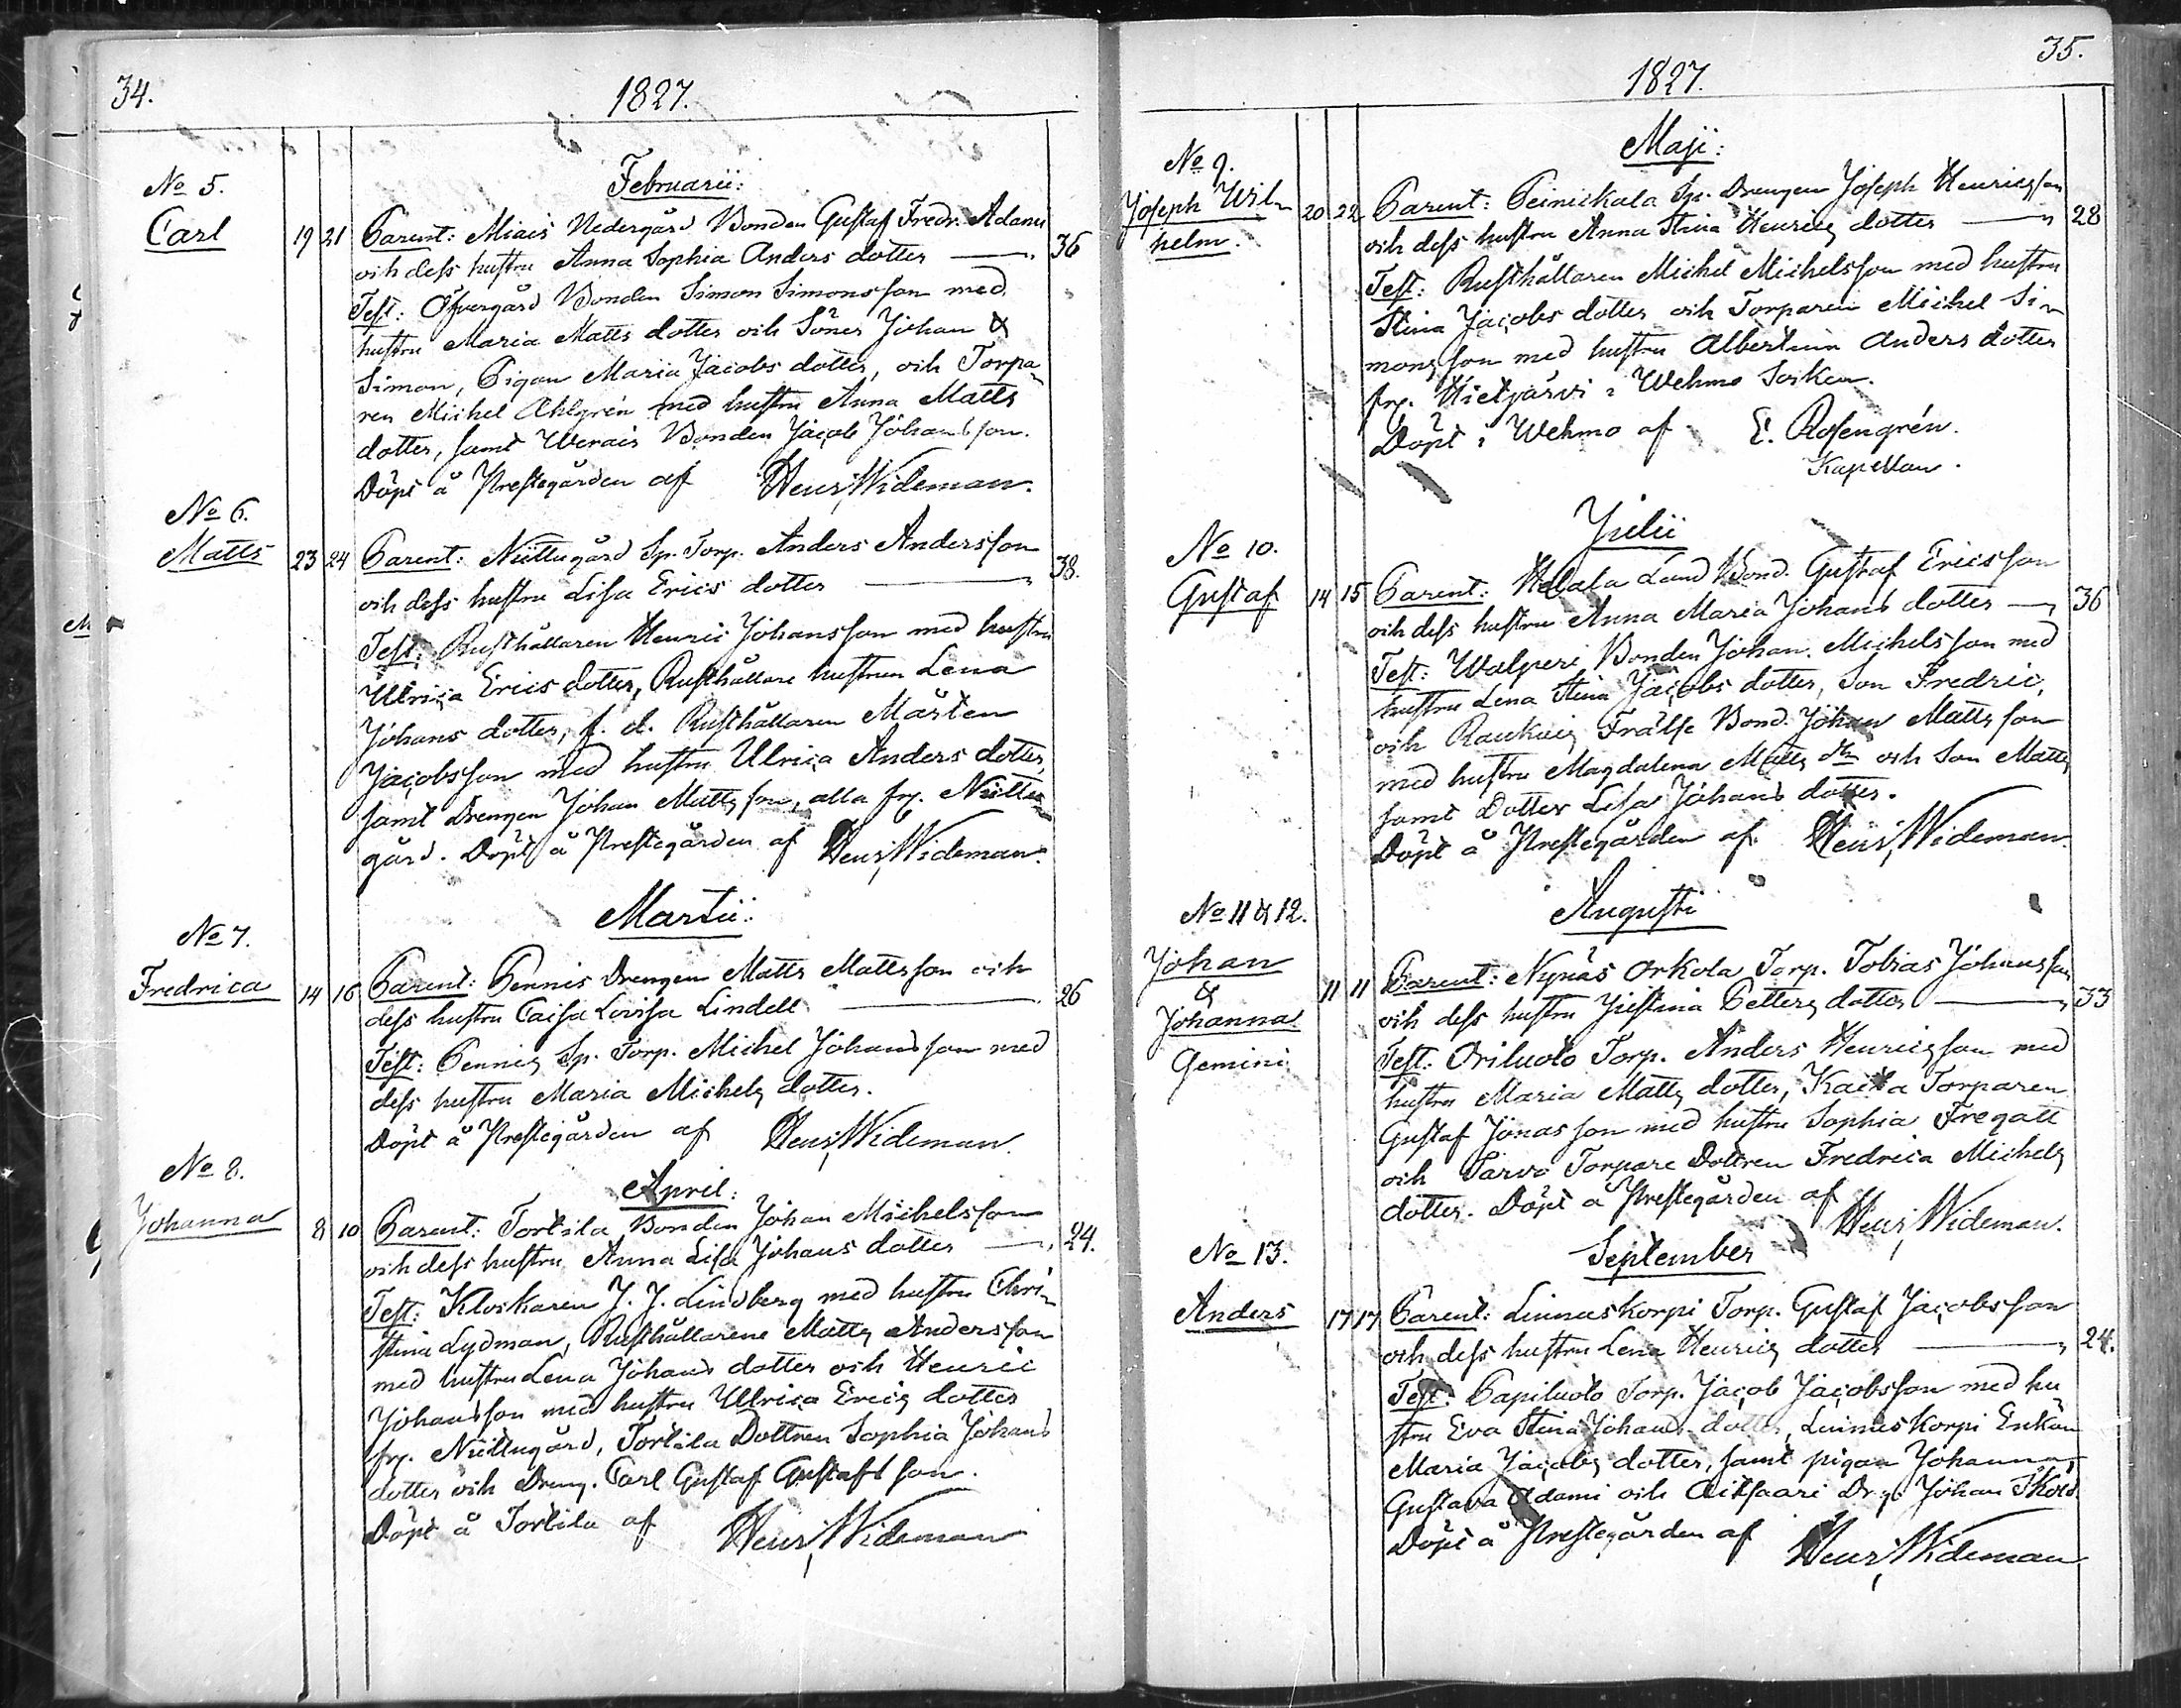 34.
1827.
Februarii:
No 5.
Carl
19 21 Parent: Miais Nedergård Bonden Gustaf Fredr. Adami
och dess hustru Anna Sophia Anders dotter — 36
Test: Öfvergård Bonden Simon Simonsson med
hustru Maria Matts dotter och Söner Johan &
Simon, Pigan Maria Jacobs dotter, och Torpa-
ren Michel Ahlgrén med hustru Anna Matts
dotter, samt Werais Bonden Jacob Johansson.
Döpt å Prestegården af Henr: Wideman.
No 6.
Matts
23 24 Parent: Niittugård Sp. Torp. Anders Andersson
och dess hustru Lisa Erics dotter — 38.
Test: Rusthållaren Henric Johansson med hustru
Ulrica Erics dotter, Rusthållare hustrun Lena
Johans dotter, f. d. Rusthållaren Mårten
Jacobsson med hustru Ulrica Anders dotter,
samt Drengen Johan Mattsson, alla fr. Niittu-
gård. Döpt å Prestegården af Henr: Wideman.
Martii:
No 7.
Fredrica
14 16 Parent: Pennis Drengen Matts Mattsson och
dess hustru Caisa Lovisa Lindell — 26
Test: Pennis Sp. Torp. Michel Johansson med
dess hustru Maria Michels dotter.
Döpt å Prestegården af Henr: Wideman.
April:
No 8.
Johanna
8 10 Parent: Tortila Bonden Johan Michelsson
och dess hustru Anna Lisa Johans dotter — 24.
Test: Klockaren J. J. Lindberg med hustru Chri-
stina Lydman, Rusthållarene Matts Andersson
med hustru Lena Johans dotter och Henric
Johansson med hustru Ulrica Erics dotter
fr. Niittugård, Tortila Dottren Sophia Johans
dotter och Dreng. Carl Gustaf Gustafsson.
Döpt å Tortila af Henr: Wideman
35.
1827.
Maji:
No 9.
Joseph Wil-
helm.
20 22 Parent: Peinikala Sp. Drengen Joseph Henricsson
och dess hustru Anna Stina Henrics dotter — 28
Test: Rusthållaren Michel Michelsson med hustru
Stina Jacobs dotter och Torparen Michel Si-
monsson med hustru Albertina Anders dotter
fr. Hietjärvi i Wehmo Socken.
Döpt i Wehmo af E. Rosengrén.
Kapellan.
Julii
No 10.
Gustaf
14 15 Parent: Helala Land Bond. Gustaf Ericsson
och dess hustru Anna Maria Johans dotter — 36
Test: Walperi Bonden Johan Michelsson med
hustru Lena Stina Jacobs dotter, Son Fredric,
och Raukais Frälse Bond. Johan Mattsson
med hustru Magdalena Matts dr och Son Matts
samt Dotter Lisa Johans dotter.
Döpt å Prestegården af Henr: Wideman.
Augusti
No 11 & 12.
Johan
&
Johanna
Gemini
11 11 Parent: Nynäs Orkola Torp. Tobias Johansson
och dess hustru Justina Petters dotter — 33
Test: Oriluoto Torp. Anders Henricsson med
hustru Maria Matts dotter, Kaita Torparen
Gustaf Jonasson med hustru Sophia Fregatt
och Särvo Torpare Dottren Fredrica Michels
dotter. Döpt å Prestegården af
Henr: Wideman.
September
No 13.
Anders
17 17 Parent: Linnuskorpi Torp. Gustaf Jacobsson
och dess hustru Lena Henrics dotter — 24.
Test: Papiluoto Torp. Jacob Jacobsson med hu
stru Eva Stina Johans dotter, Linnuskorpi Enkan
Maria Jacobs dotter, samt pigan Johanna
Gustava Adami och Aitsaari Dr. Johan Sköld.
Döpt å Prestegården af Henr: Wideman